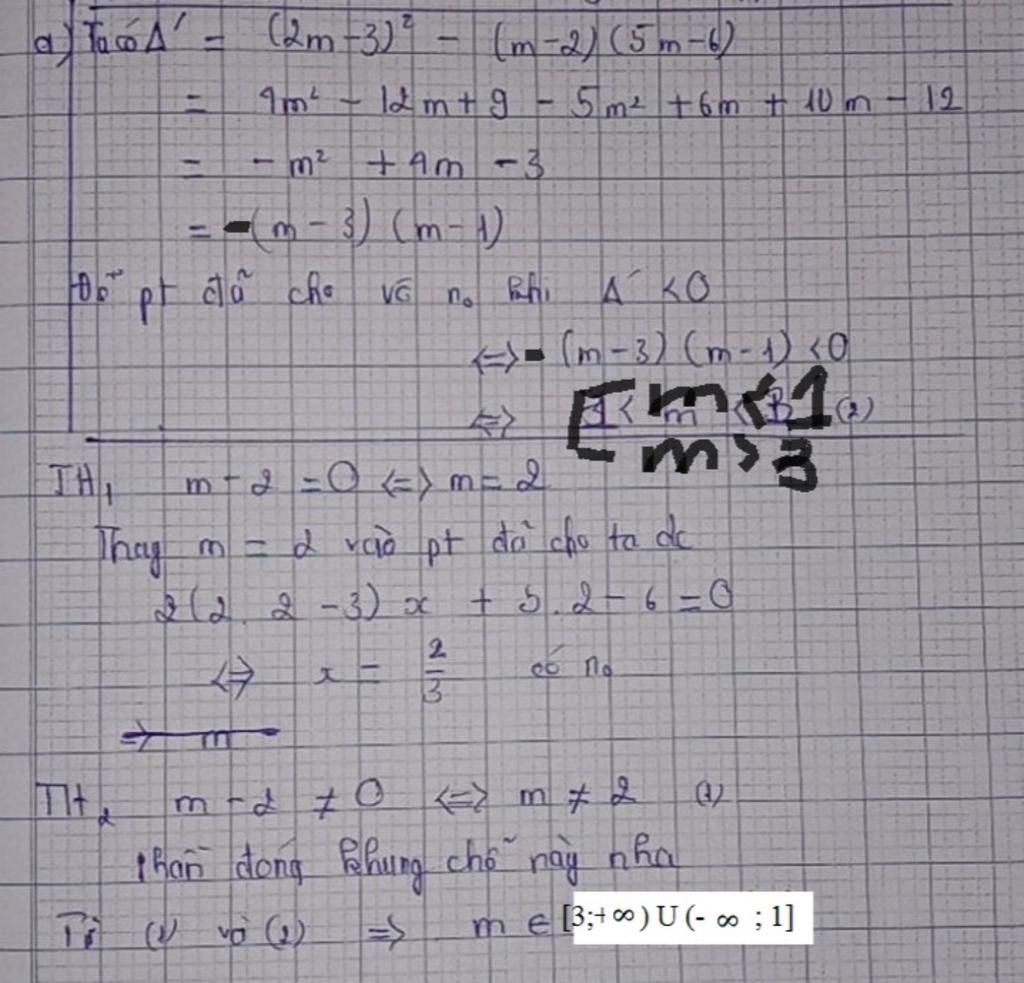 a) Ta có Δ' = (2m-3)² - (m-2)(5m-6)
= 4m² - 12m + 9 - 5m² + 6m + 10m - 12
= -m² + 4m - 3
= -(m-3)(m-1)
Để pt đã cho vô n₀ khi Δ' <0
<=> - (m-3)(m-1) <0
<=> [ m<1 (2)
m>3
TH₁ m-2 =0 <=> m=2
Thay m = 2 vào pt đã cho ta dc
2(2.2-3)x + 5.2-6 =0
<=> x = 2/3 có n₀
=> m
TH₂ m-2 ≠ 0 <=> m ≠ 2 (1)
phần đóng khung chỗ này nha
Từ (1) và (2) => m ∈ [3;+∞) U (- ∞ ; 1]